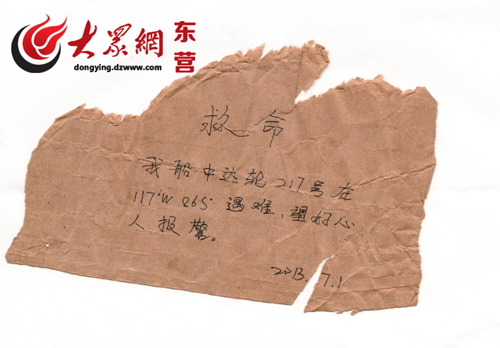 大众網
东营
dongying.dzwww.com
救命
我船中远轮217号在
117°W Q65° 遇难，望好心
人报警。
2013.7.1